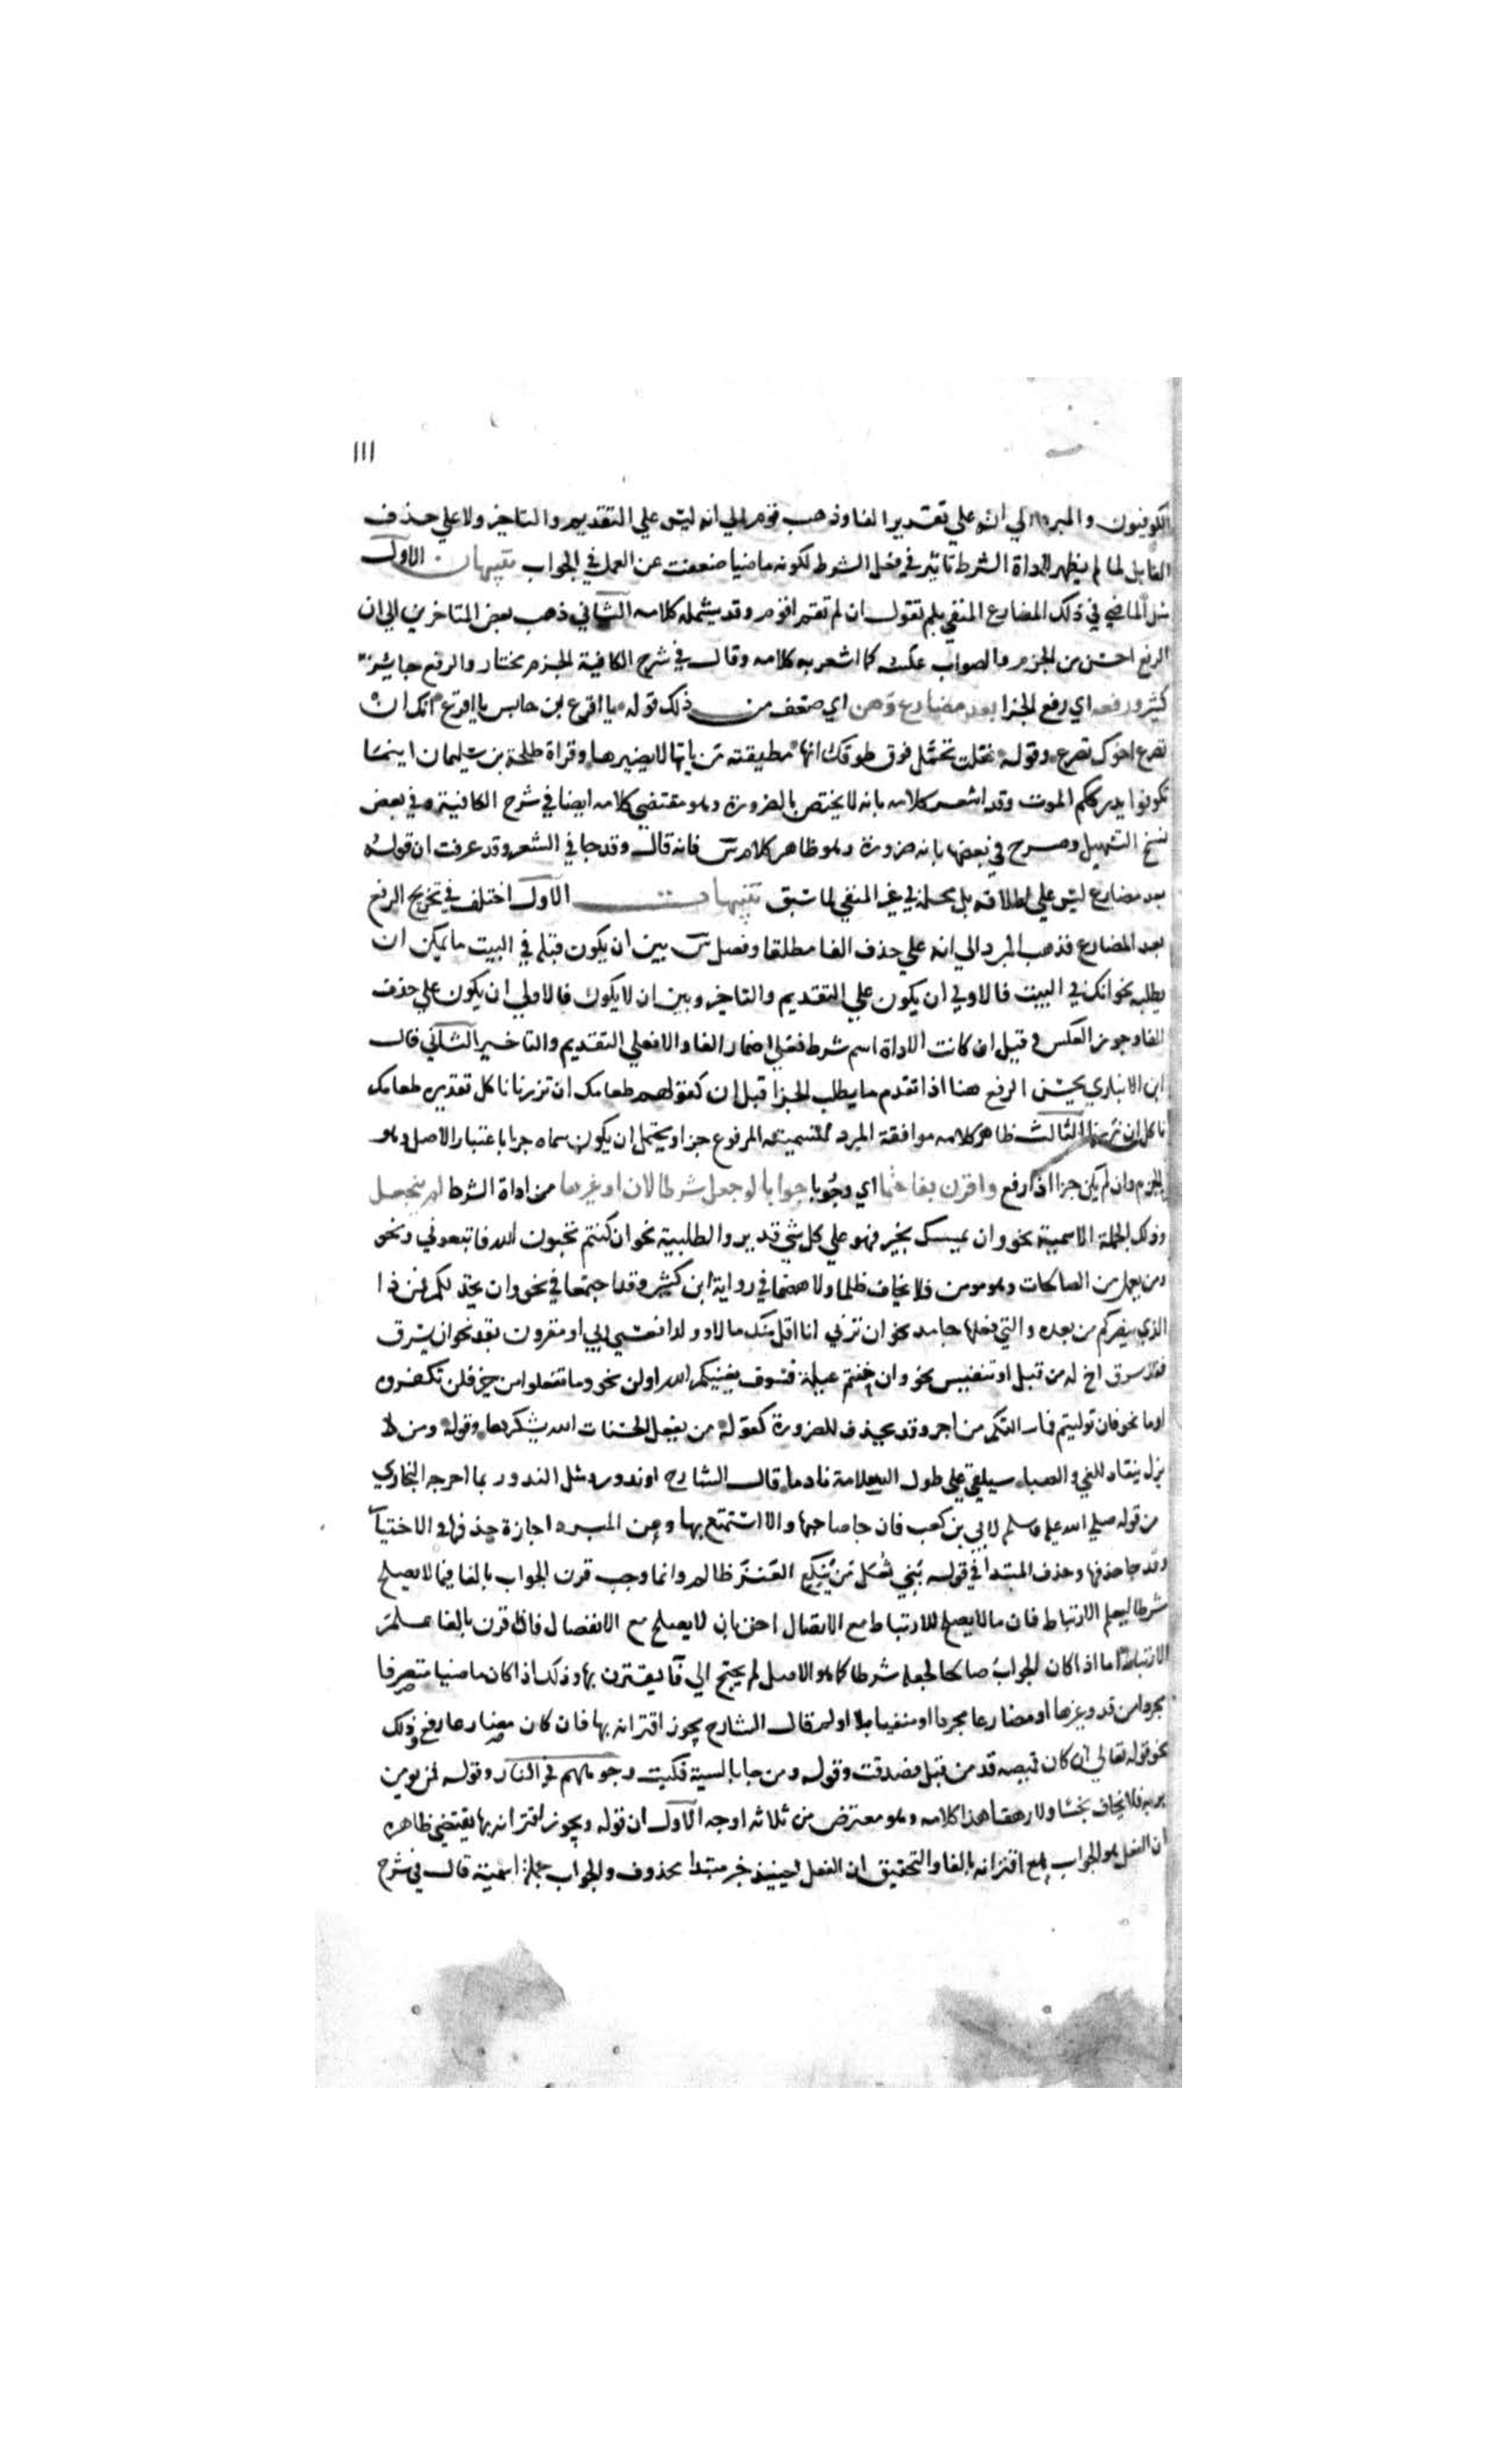 ١١١
الكوفيون والمبرد الي انه علي تقدير الفا وذهب قوم الي انه ليس علي التقديم والتاخير ولا علي حذف
الفا بل لما لم يظهر لاداة الشرط تاثير في فعل الشرط لكونه ماضيا ضعفت عن العمل في الجواب تنبيهان الاول
مثل الماضي في ذلك المضارع المنفي بلم تقول ان لم تقم اقوم وقد يشمله كلامه الثاني ذهب بعض المتاخرين الي ان
الرفع احسن من الجزم والصواب عكسه كما اشعر به كلامه وقال في شرح الكافية الجزم مختار والرفع جائز
كثير ورفعه اي رفع الجزا بعد مضارع وهن اي ضعف من ذلك قوله يا اقرع بن حابس يا اقرع انك ان
تصرع اخوك تصرع وقوله فقلت تحمل فوق طوقك انها مطبقة من ياتها لا يضيرها وقراة طلحة بن سليمان اينما
تكونوا يدرككم الموت وقد اشعر كلامه بانه لا يختص بالضرورة وهو مقتضي كلامه ايضا في شرح الكافية وفي بعض
نسخ التسهيل وصرح في بعضها بانه ضرورة وهو ظاهر كلام س فانه قال وقد جا في الشعر وقد عرفت ان قوله
بعد مضارع ليس علي اطلاقه بل محله في غير المنفي لما سبق تنبيهات الاول اختلف في تخريج الرفع
بعد المضارع فذهب المبرد الي انه علي حذف الفا مطلقا وفصل س بين ان يكون قبله في البيت ما يمكن ان
يطلبه نحو انك في البيت فالاولي ان يكون علي التقديم والتاخير وبين ان لا يكون فالاولي ان يكون علي حذف
الفا وجوز العكس وقيل ان كانت الاداة اسم شرط فعلي اضمار الفا والا فعلي التقديم والتاخير الثاني قال
ابن الانباري يحسن الرفع هنا اذا تقدم ما يطلب الجزا قبل ان كقولهم طعامك ان تزرنا ناكل تقديره طعامك
ناكل ان تزرنا الثالث ظاهر كلامه موافقة المبرد لتسميته المرفوع جزا ويحتمل ان يكون سماه جزا باعتبار الاصل وهو
الجزم وان لم يكن جزا اذا رفع واقرن بفا حتما اي وجوبا جوابا لو جعل شرطا لان او غيرها من اداة الشرط لم ينجعل
وذلك الجملة الاسمية نحو وان يمسسك بخير فهو علي كل شي قدير والطلبية نحو ان كنتم تحبون الله فاتبعوني ونحو
ومن يعمل من الصالحات وهو مومن فلا يخاف ظلما ولا هضما في رواية ابن كثير وقد اجتمعا في نحو وان يخذلكم فمن ذا
الذي ينصركم من بعده والتي فعلها جامد نحو ان ترني انا اقل منك مالا وولدا فعسي ربي او مقرون بقد نحو ان يسرق
فقد سرق اخ له من قبل او تنفيس نحو وان خفتم عيلة فسوف يغنيكم الله او لن نحو وما تفعلوا من خير فلن تكفروه
او ما نحو فان توليتم فما سالتكم من اجر وقد يحذف للضرورة كقوله من يفعل الحسنات الله يشكرها وقوله ومن لا
يزل ينقاد للغي والصبا سيلفي علي طول السلامة نادما قال الشارح او ندور ومثل الندور بما اخرجه البخاري
من قوله صلي الله عليه وسلم لابي بن كعب فان جا صاحبها والا استمتع بها وعن المبرد اجازة حذفها في الاختيار
وقد جا حذفها وحذف المبتدا في قوله بني ثعل من ينكع العنز ظالم وانما وجب قرن الجواب بالفا فيما لا يصلح
شرطا ليعلم الارتباط فان ما لا يصلح للارتباط مع الاتصال احق بان لا يصلح مع الانفصال فاذا قرن بالفا علم
الارتباط اما اذا كان الجواب صالحا لجعله شرطا كما هو الاصل لم يحتج الي فا يقترن بها وذلك اذا كان ماضيا متصرفا
مجردا من قد وغيرها او مضارعا مجردا او منفيا بلا او لم قال الشارح يجوز اقترانه بها فان كان مضارعا رفع وذلك
نحو قوله تعالي ان كان قميصه قد من قبل فصدقت وقوله ومن جا بالسية فكبت وجوههم في النار وقوله فمن يومن
بربه فلا يخاف بخسا ولا رهقا هذا كلامه وهو معترض من ثلاثة اوجه الاول ان قوله ويجوز اقترانه بها يقتضي ظاهره
ان الفعل هو الجواب مع اقترانه بالفا والتحقيق ان الفعل حينيذ خبر مبتدا محذوف والجواب جملة اسمية قال في شرح